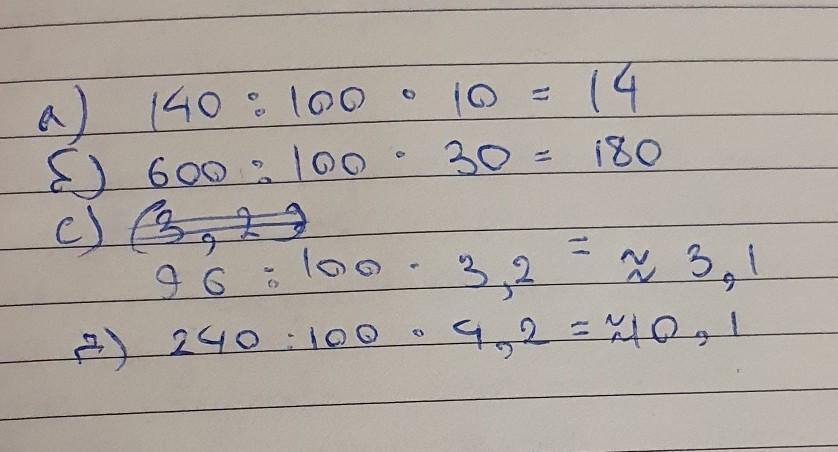 а) 140 : 100 · 10 = 14
б) 600 : 100 · 30 = 180
с) (3,2)
96 : 100 · 3,2 = ≈ 3,1
д) 240 : 100 · 4,2 = ≈10,1